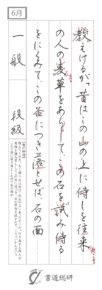 6月
教えけるが昔はこの山の上に侍しを往来
の人の麦草をあらして、この石を試み侍る
をにくみてこの谷につき落とせば石の面
一般
段級
書道総研